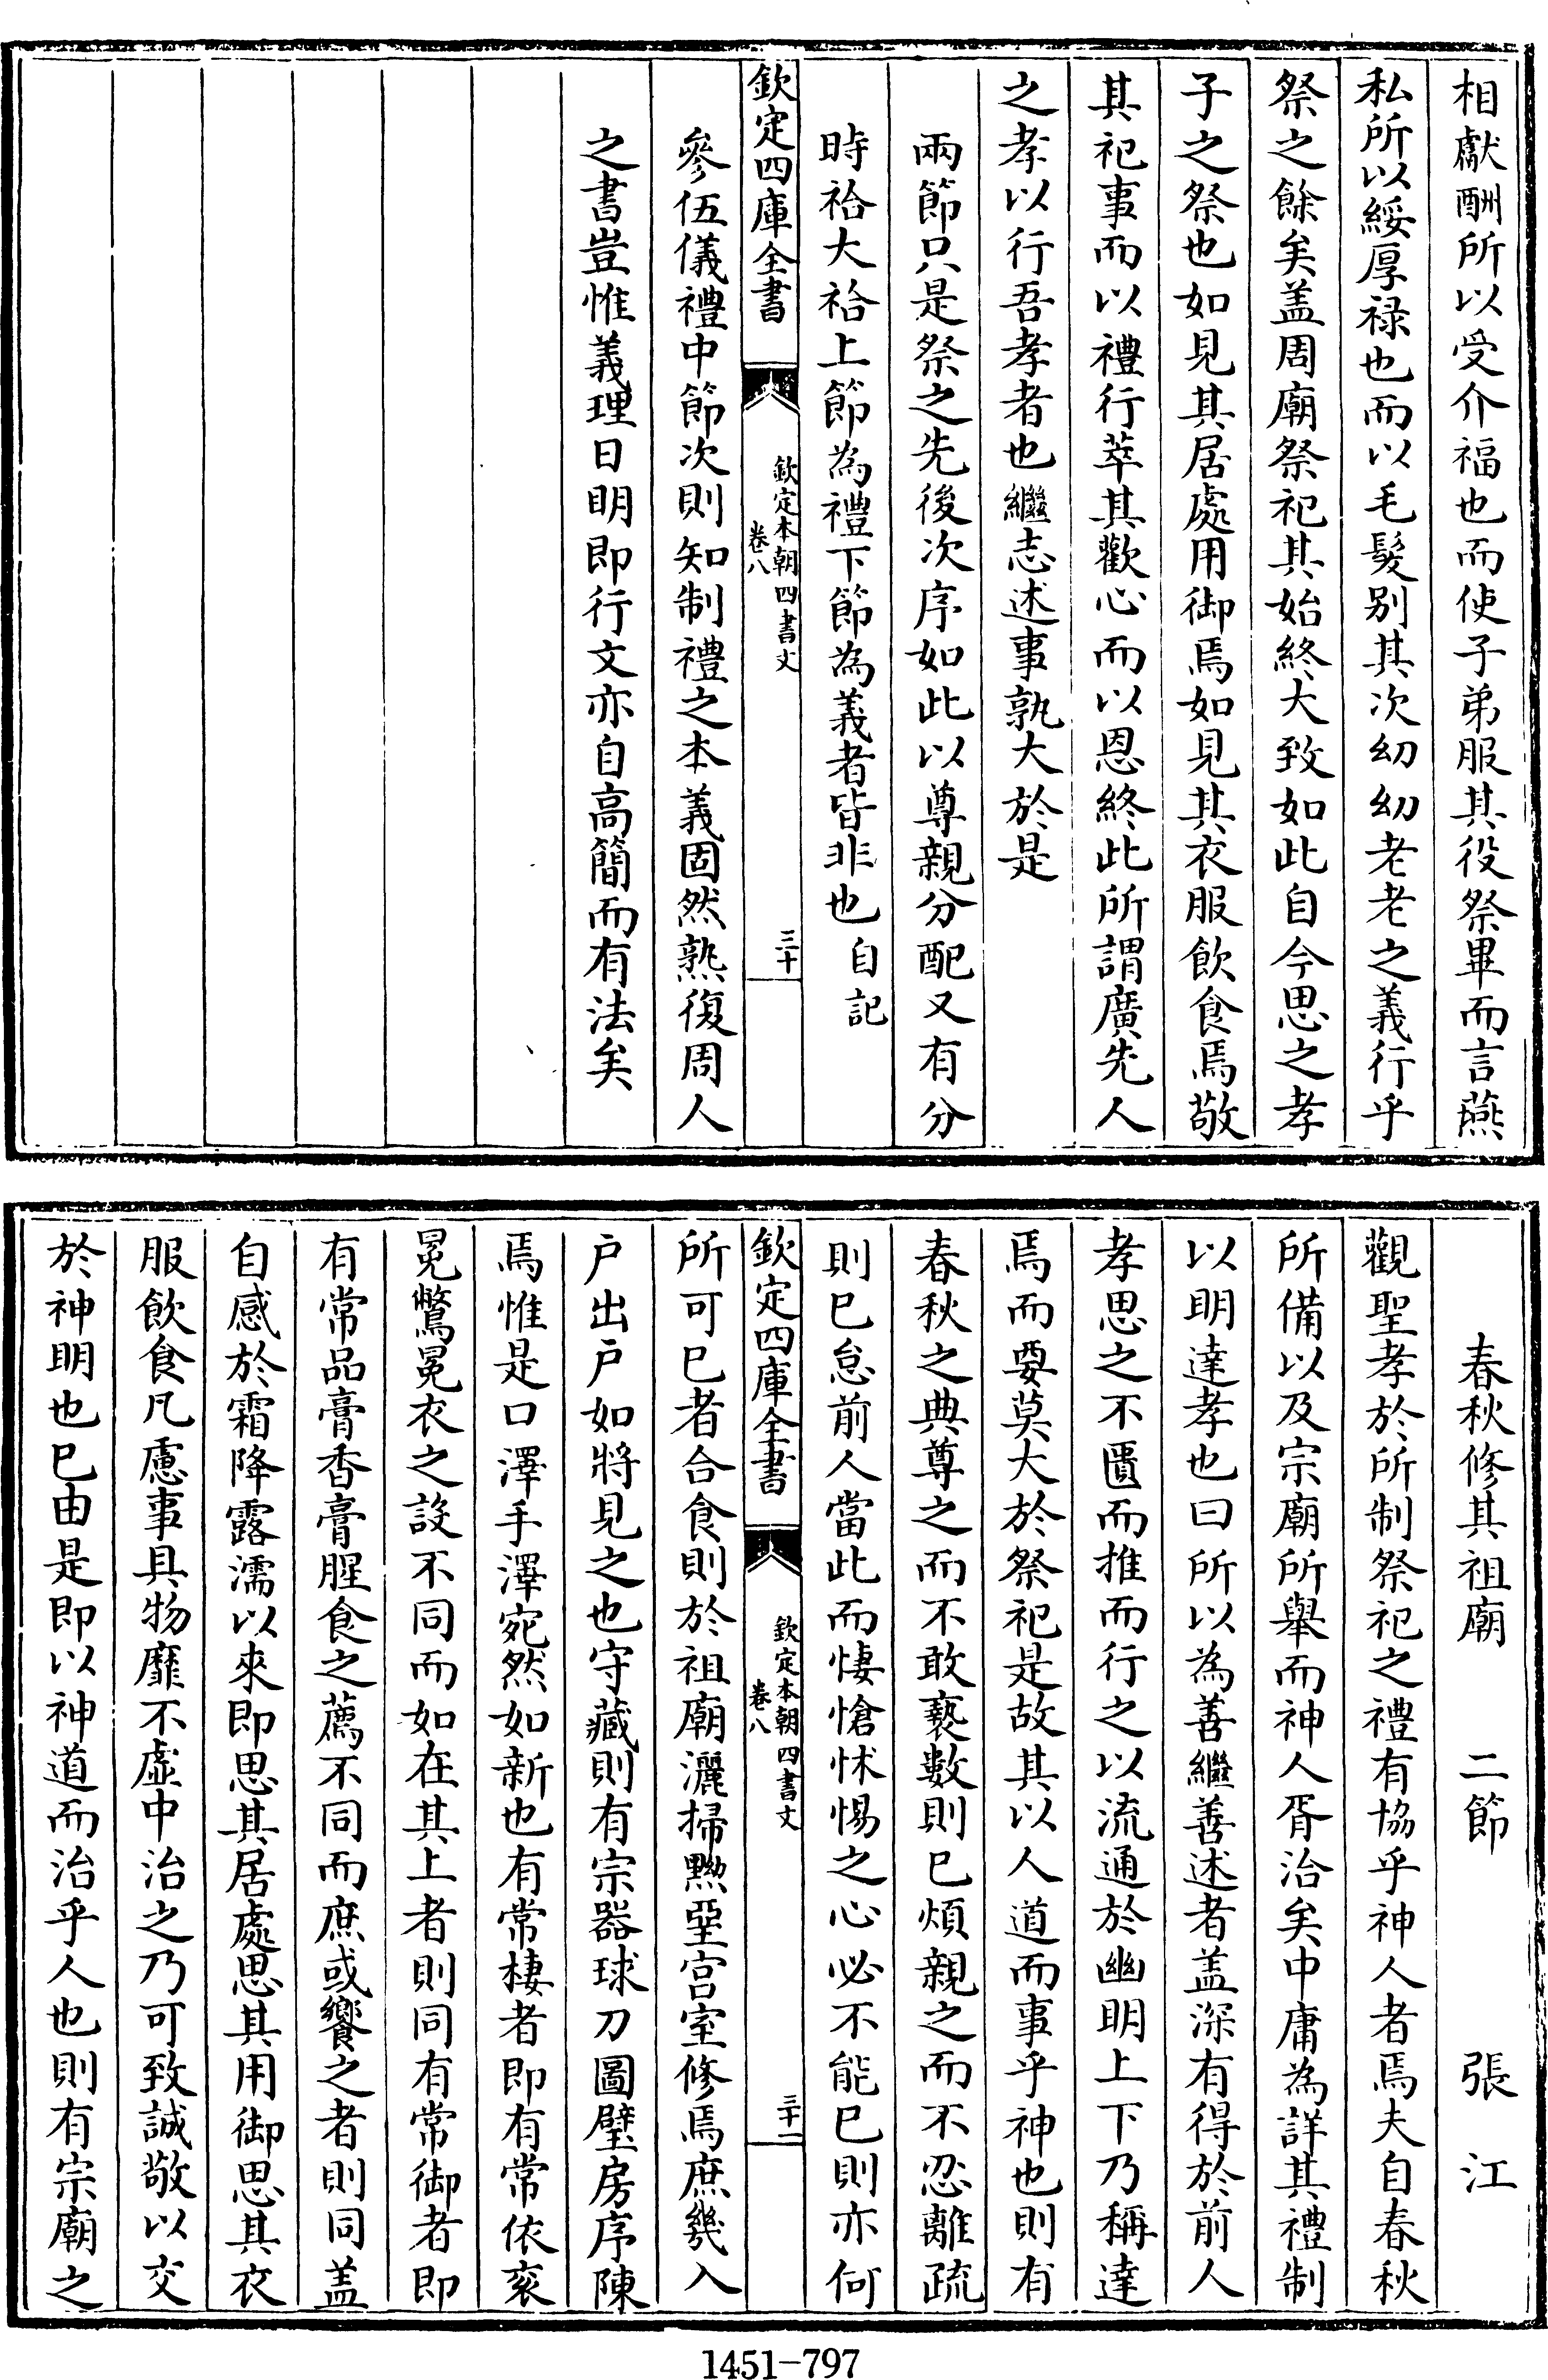 相獻酬所以受介福也而使子弟服其役祭畢而言燕
私所以綏厚禄也而以毛髮别其次幼幼老老之義行乎
祭之餘矣盖周廟祭祀其始終大致如此自今思之孝
子之祭也如見其居處用御焉如見其衣服飲食焉敬
其祀事而以禮行萃其歡心而以恩終此所謂廣先人
之孝以行吾孝者也繼志述事孰大於是
兩節只是祭之先後次序如此以尊親分配又有分
時祫大祫上節為禮下節為義者皆非也自記
欽定四庫全書
欽定本朝四書文
卷八
三十
參伍儀禮中節次則知制禮之本義固然熟復周人
之書豈惟義理日明即行文亦自高簡而有法矣
春秋修其祖廟 二節 張江
觀聖孝於所制祭祀之禮有協乎神人者焉夫自春秋
所備以及宗廟所舉而神人胥洽矣中庸為詳其禮制
以明達孝也曰所以為善繼善述者盖深有得於前人
孝思之不匱而推而行之以流通於幽明上下乃稱達
焉而要莫大於祭祀是故其以人道而事乎神也則有
春秋之典尊之而不敢褻數則已煩親之而不忍離疏
則已怠前人當此而悽愴怵惕之心必不能已則亦何
欽定四庫全書
欽定本朝四書文
卷八
三十一
所可已者合食則於祖廟灑掃黝堊宫室修焉庶幾入
户出户如將見之也守藏則有宗器球刀圖璧房序陳
焉惟是口澤手澤宛然如新也有常棲者即有常依衮
冕鷩冕衣之設不同而如在其上者則同有常御者即
有常品膏香膏腥食之薦不同而庶或饗之者則同盖
自感於霜降露濡以來即思其居處思其用御思其衣
服飲食凡慮事具物靡不虚中治之乃可致誠敬以交
於神明也已由是即以神道而治乎人也則有宗廟之
1451-797